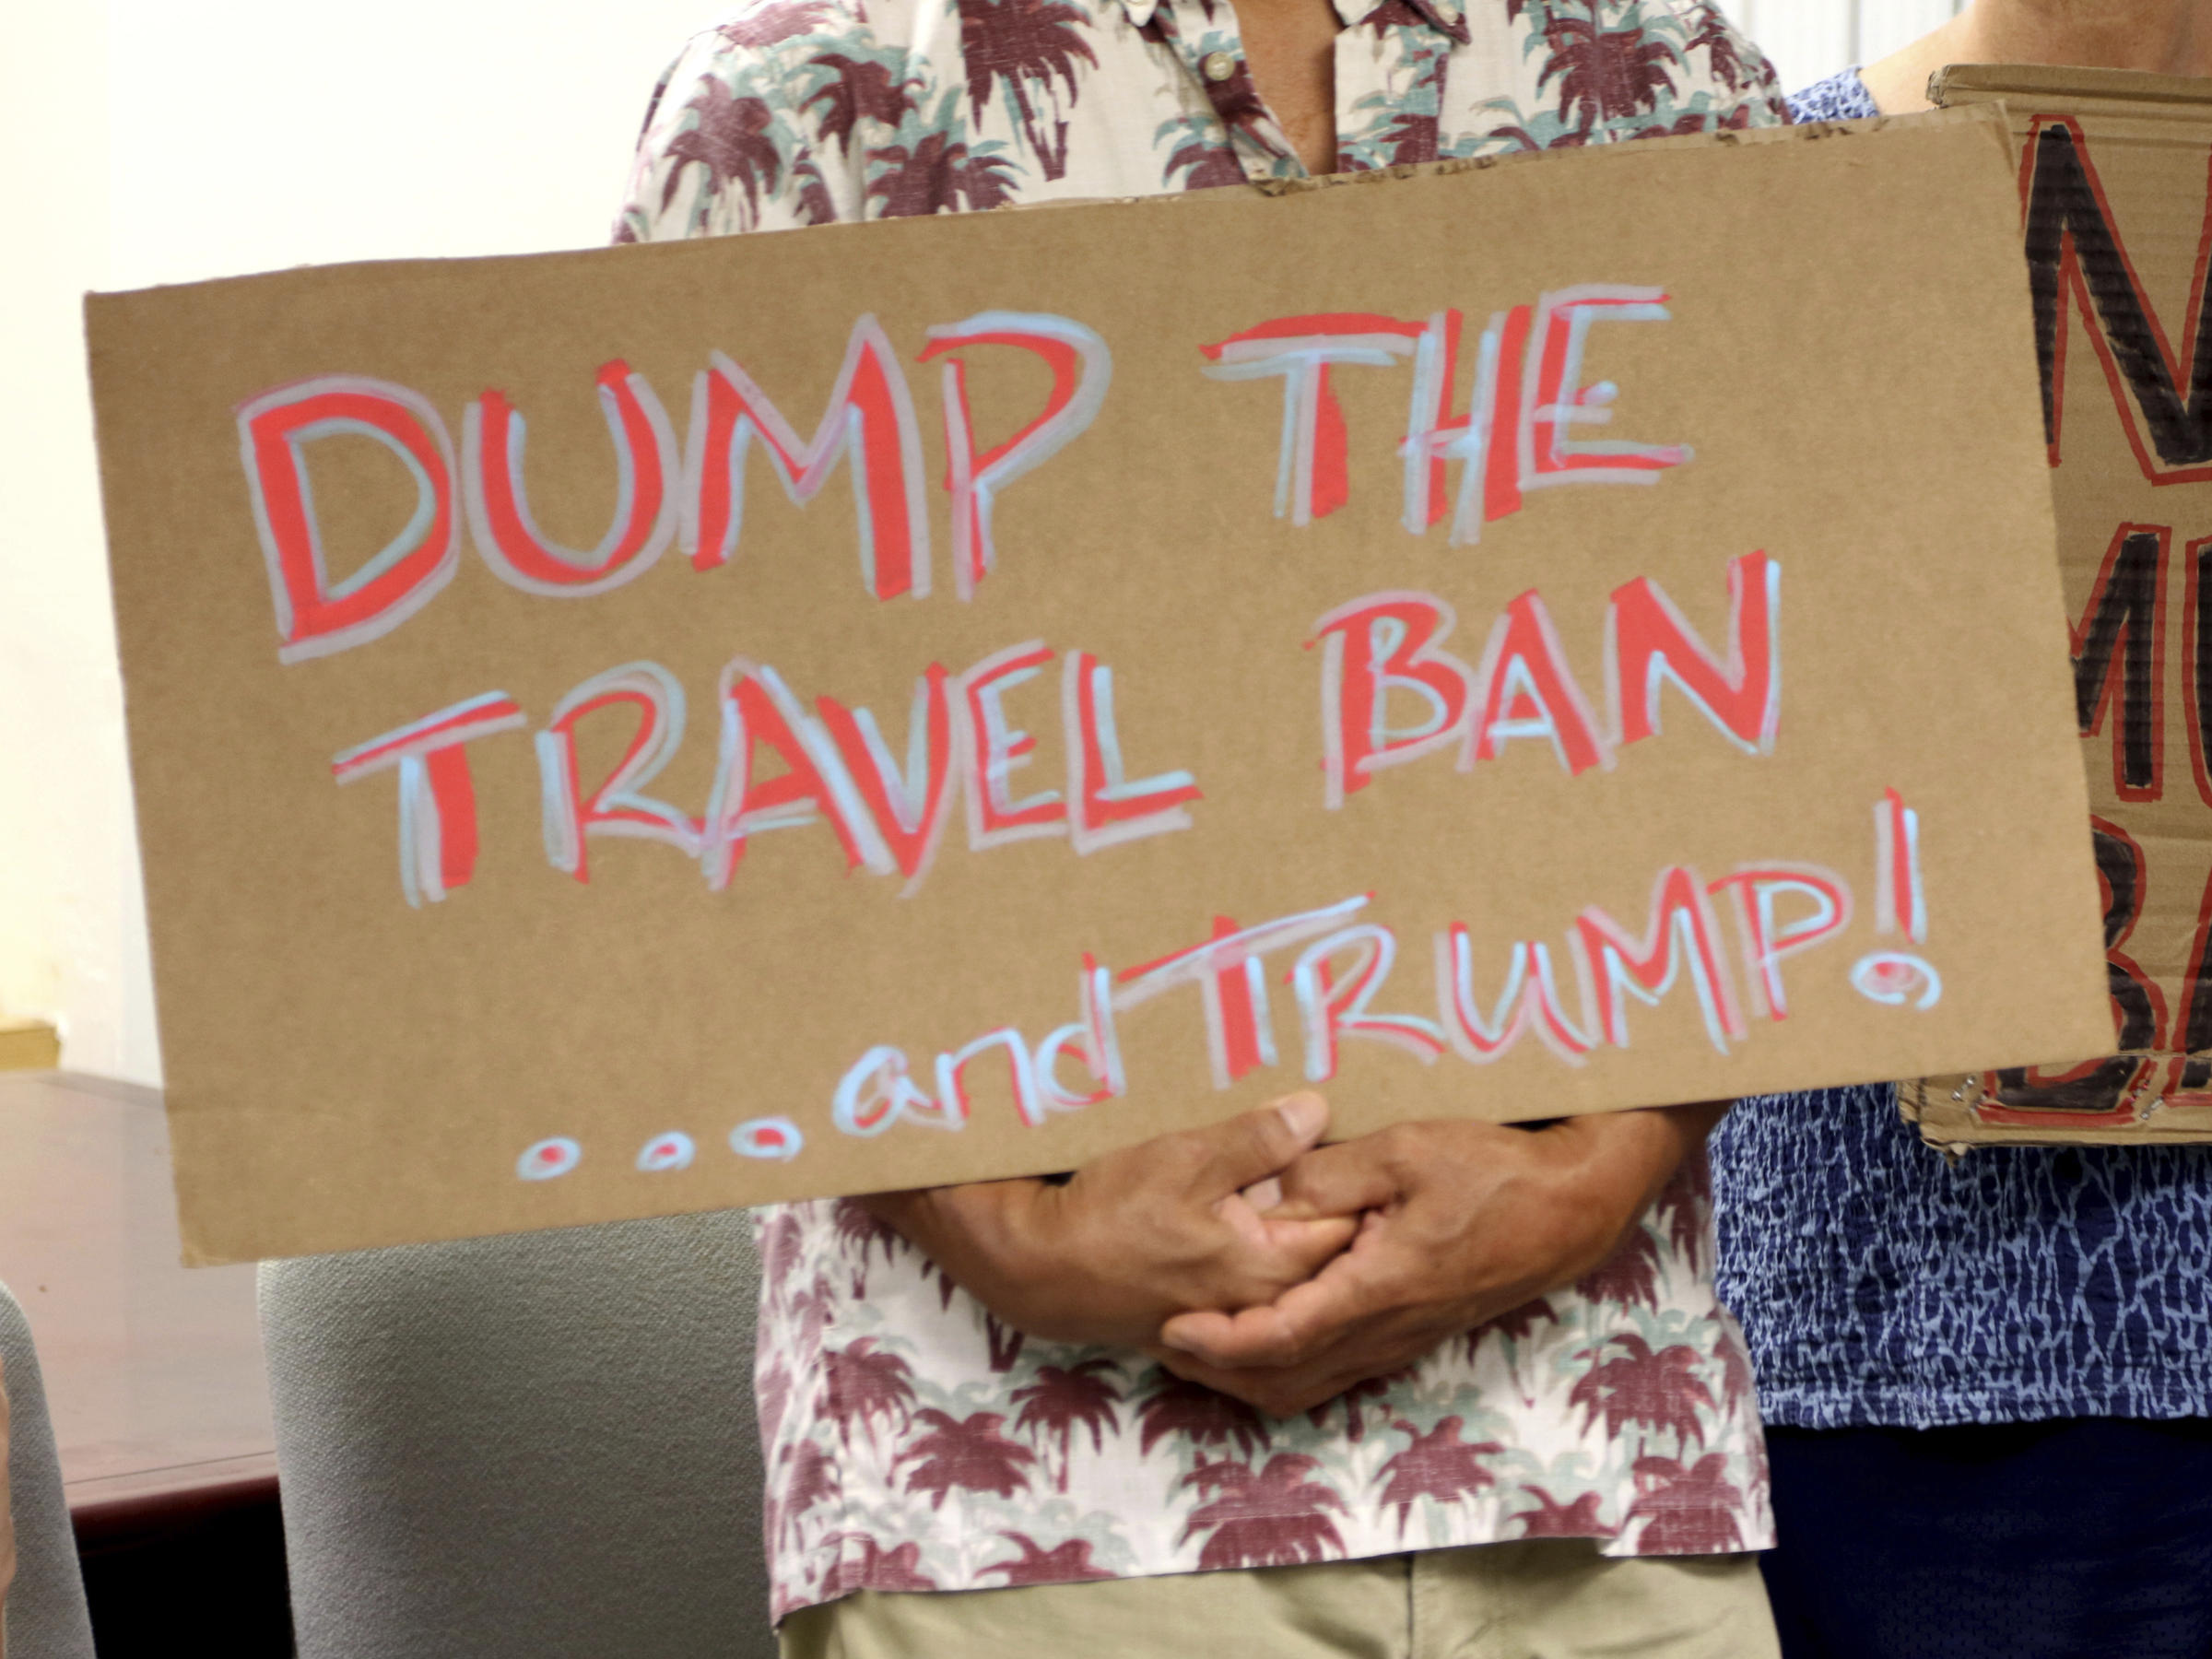 DUMP THE
TRAVEL BAN
...and TRUMP!